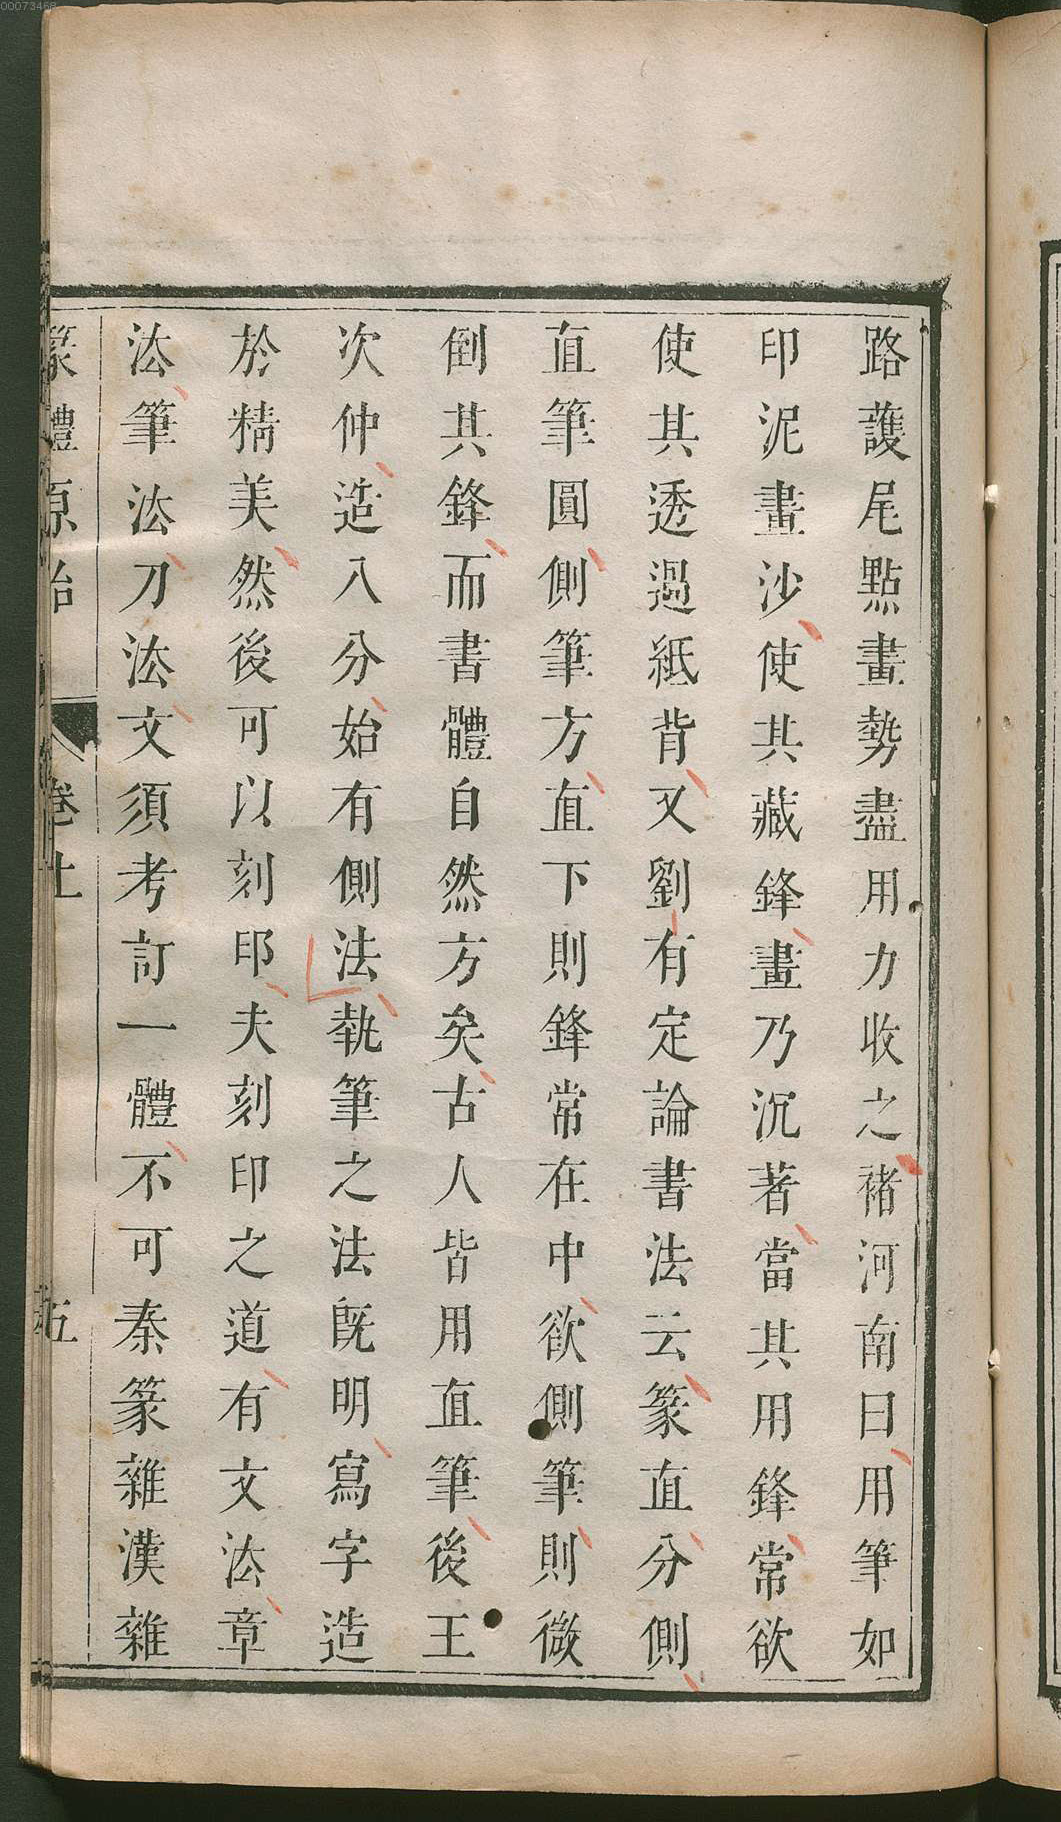 00073468
路䕶尾點畫勢盡用力收之褚河南曰用筆如
印泥畫沙使其藏鋒畫乃沉著當其用鋒常欲
使其透過紙背又劉有定論書法云篆直分側
直筆圓側筆方直下則鋒常在中欲側筆則微
倒其鋒而書體自然方矣古人皆用直筆後王
次仲造八分始有側法執筆之法既明寫字造
於精美然後可以刻印夫刻印之道有文法章
法筆法刀法文須考訂一體不可秦篆雜漢雜
篆體原始 卷上 五